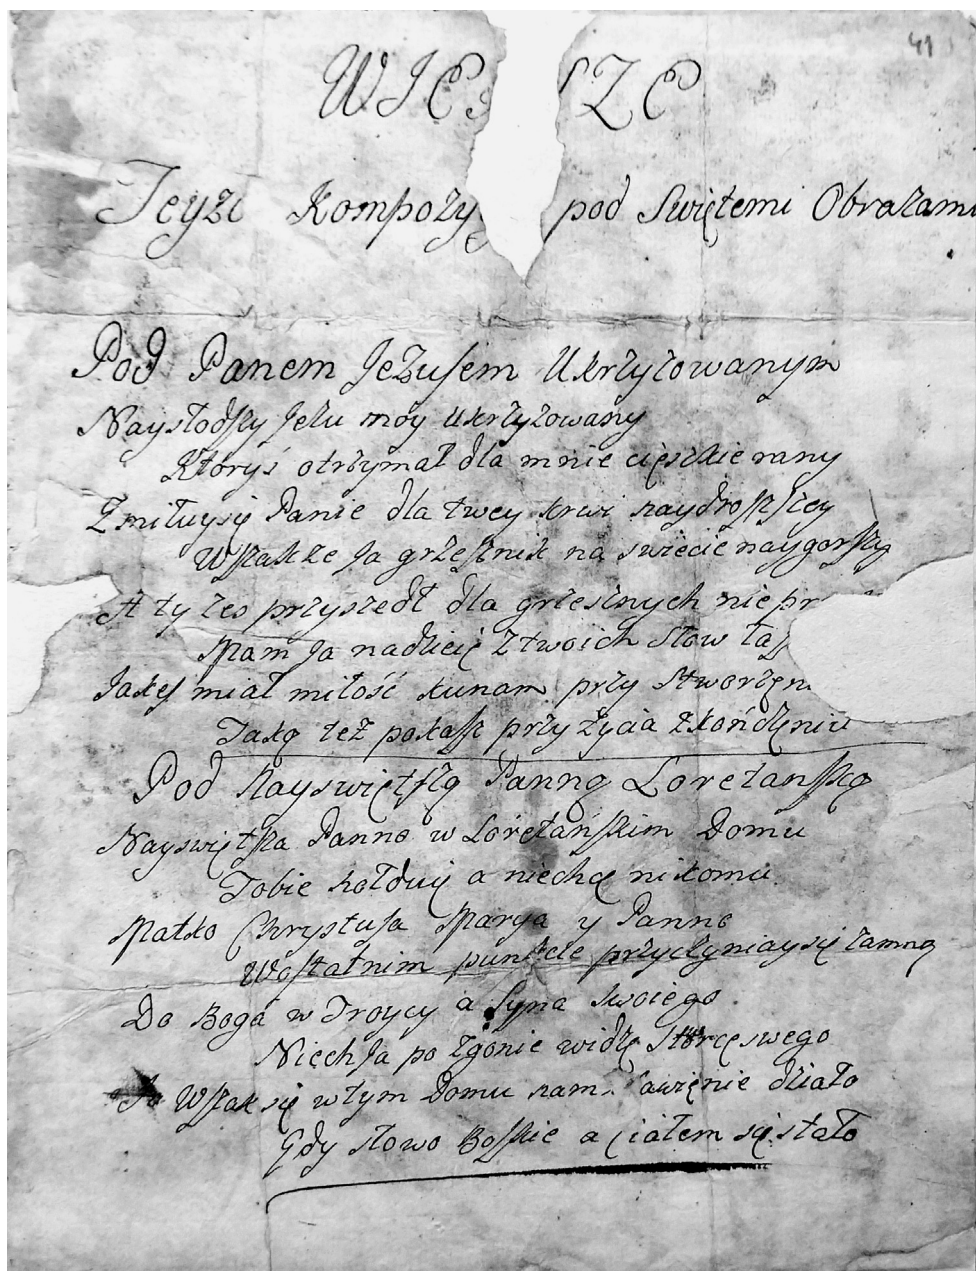 41
WIE SZE
Teyże Kompozy pod Swiętemi Obrazami
Pod Panem Jezusem Ukrzyżowanym
Naysłodszy Jezu moy ukrzyżowany
Ktoryś otrzymał dla mnie cięszkie rany
Zmiłuysię Panie dla twey krwi naydroższey
Wszakże Ja grzesznik na swiecie naygorszy
A ty zes przyszedł dla grzesznych nie
Mam Ja nadzieię z twoich słow
Jakeś miał miłość kunam przy
Taką też pokasz przy życia zkończyniu
Pod Nayswiętszą Panną Loretanską
Nayswiętsza Panno w Loretańskim Domu
Tobie hołduię a niechcę nikomu
Matko Chrystusa Marya y Panno
Wostatnim punkcie przyczyniaysię zamną
Do Boga w Troycy a Syna swoiego
Niech Ja po zgonie widzę
Wszak się wtym Domu nam działo
Gdy słowo Boskie a ciałem się stało